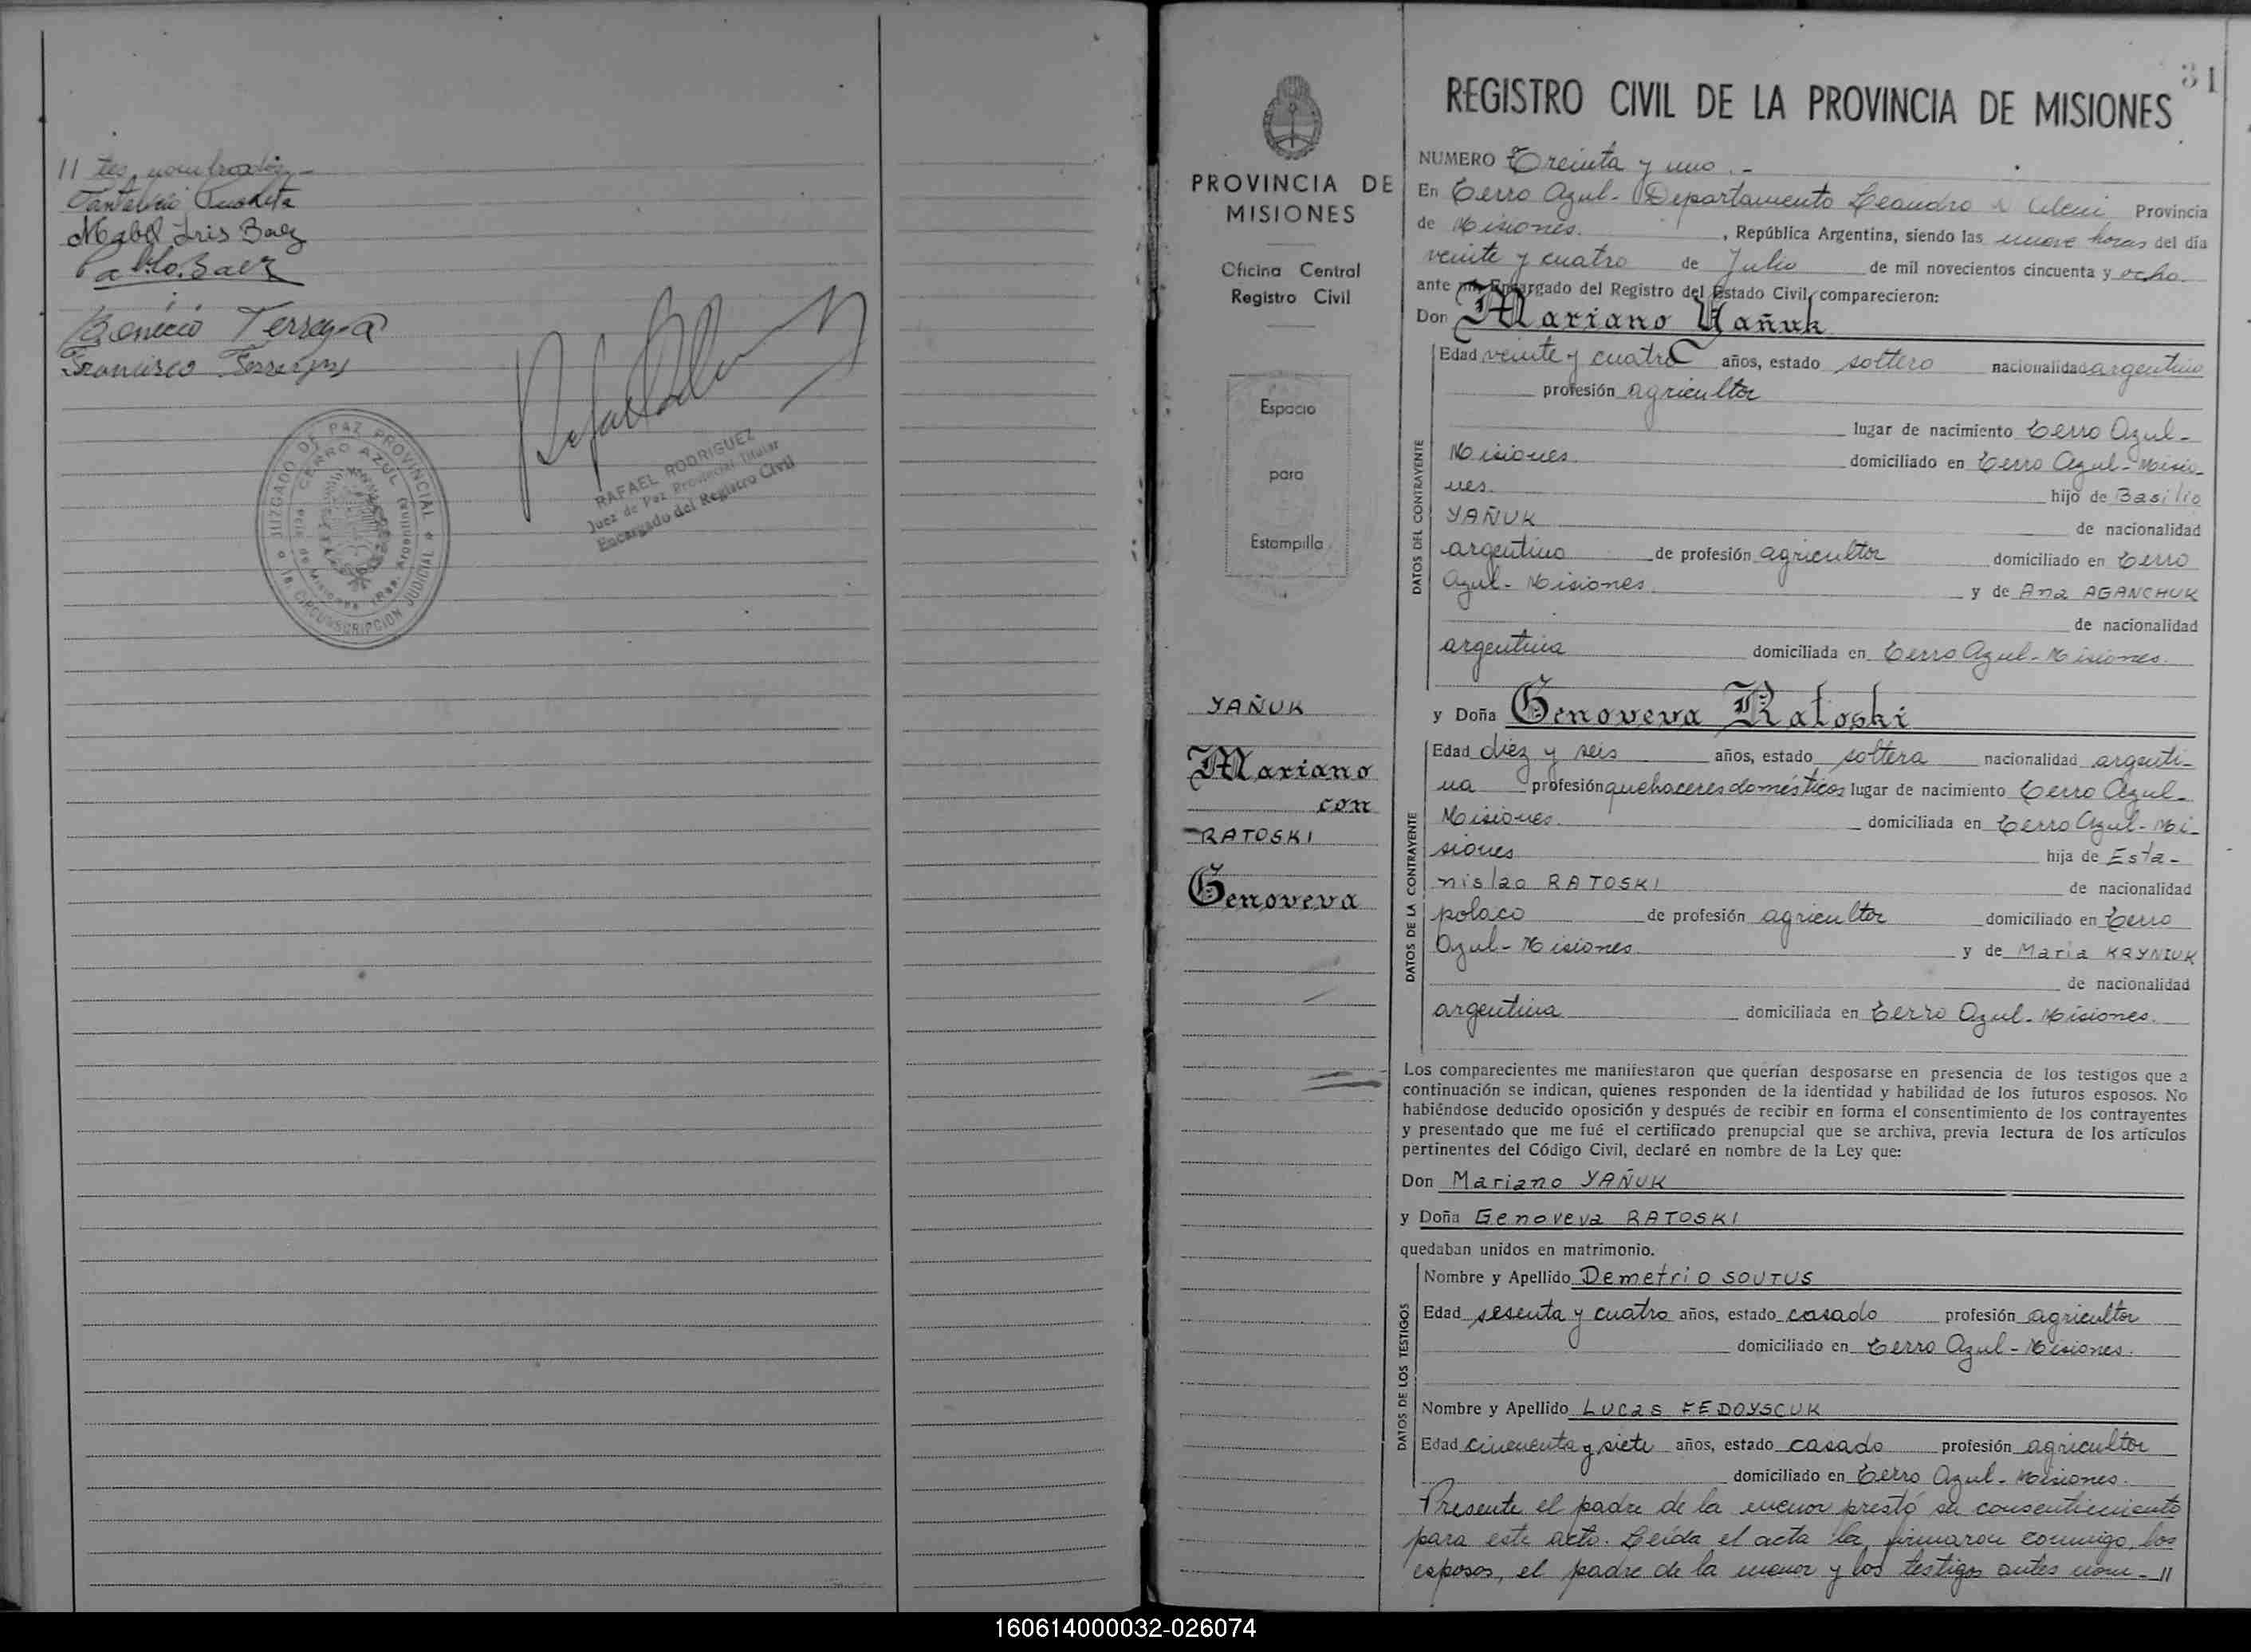 11 tes nombrados.-
Mabel Iris Baez
Pablo Baez
Bonicio Terreyra
Francisco
RAFAEL RODRIGUEZ
Juez de Paz Provincial Titular
Encargado del Registro Civil
JUZGADO DE PAZ PROVINCIAL
1a. CIRCUNSCRIPCION JUDICIAL
CERRO AZUL
Pcia. de Misiones (Rep. Argentina)
31
PROVINCIA DE
MISIONES
Oficina Central
Registro Civil
Espacio
para
Estampilla
YAÑUK
Mariano
con
RATOSKI
Genoveva
REGISTRO CIVIL DE LA PROVINCIA DE MISIONES
NUMERO Treinta y uno.-
En Cerro Azul- Departamento Leandro N Alem Provincia
de Misiones. , República Argentina, siendo las nueve horas del día
veinte y cuatro de Julio de mil novecientos cincuenta y ocho.
ante mí, Encargado del Registro del Estado Civil, comparecieron:
Don Mariano Yañuk
Edad veinte y cuatro años, estado soltero nacionalidad argentino
profesión agricultor
lugar de nacimiento Cerro Azul-
Misiones. domiciliado en Cerro Azul-Misio-
nes. hijo de Basilio
YAÑUK de nacionalidad
argentino de profesión agricultor domiciliado en Cerro
Azul- Misiones. y de Ana AGANCHUK
de nacionalidad
argentina domiciliada en Cerro Azul-Misiones.
DATOS DEL CONTRAYENTE
y Doña Genoveva Ratoski
Edad diez y seis años, estado soltera nacionalidad argenti-
na profesión quehaceres domésticos lugar de nacimiento Cerro Azul-
Misiones. domiciliada en Cerro Azul-Mi-
siones hija de Esta-
nislao RATOSKI de nacionalidad
polaco de profesión agricultor domiciliado en Cerro
Azul-Misiones. y de Maria KRYNIUK
de nacionalidad
argentina domiciliada en Cerro Azul-Misiones.
DATOS DE LA CONTRAYENTE
Los comparecientes me manifestaron que querían desposarse en presencia de los testigos que a
continuación se indican, quienes responden de la identidad y habilidad de los futuros esposos. No
habiéndose deducido oposición y después de recibir en forma el consentimiento de los contrayentes
y presentado que me fué el certificado prenupcial que se archiva, previa lectura de los artículos
pertinentes del Código Civil, declaré en nombre de la Ley que:
Don Mariano YAÑUK
y Doña Genoveva RATOSKI
quedaban unidos en matrimonio.
Nombre y Apellido Demetrio SOUTUS
Edad sesenta y cuatro años, estado casado profesión agricultor
domiciliado en Cerro Azul-Misiones.
Nombre y Apellido Lucas FEDOYSCUK
Edad cincuenta y siete años, estado casado profesión agricultor
domiciliado en Cerro Azul-Misiones.
DATOS DE LOS TESTIGOS
Presente el padre de la menor prestó su consentimiento
para este acto. Leída el acta la firmaron conmigo, los
esposos, el padre de la menor y los testigos antes nom-11
160614000032-026074